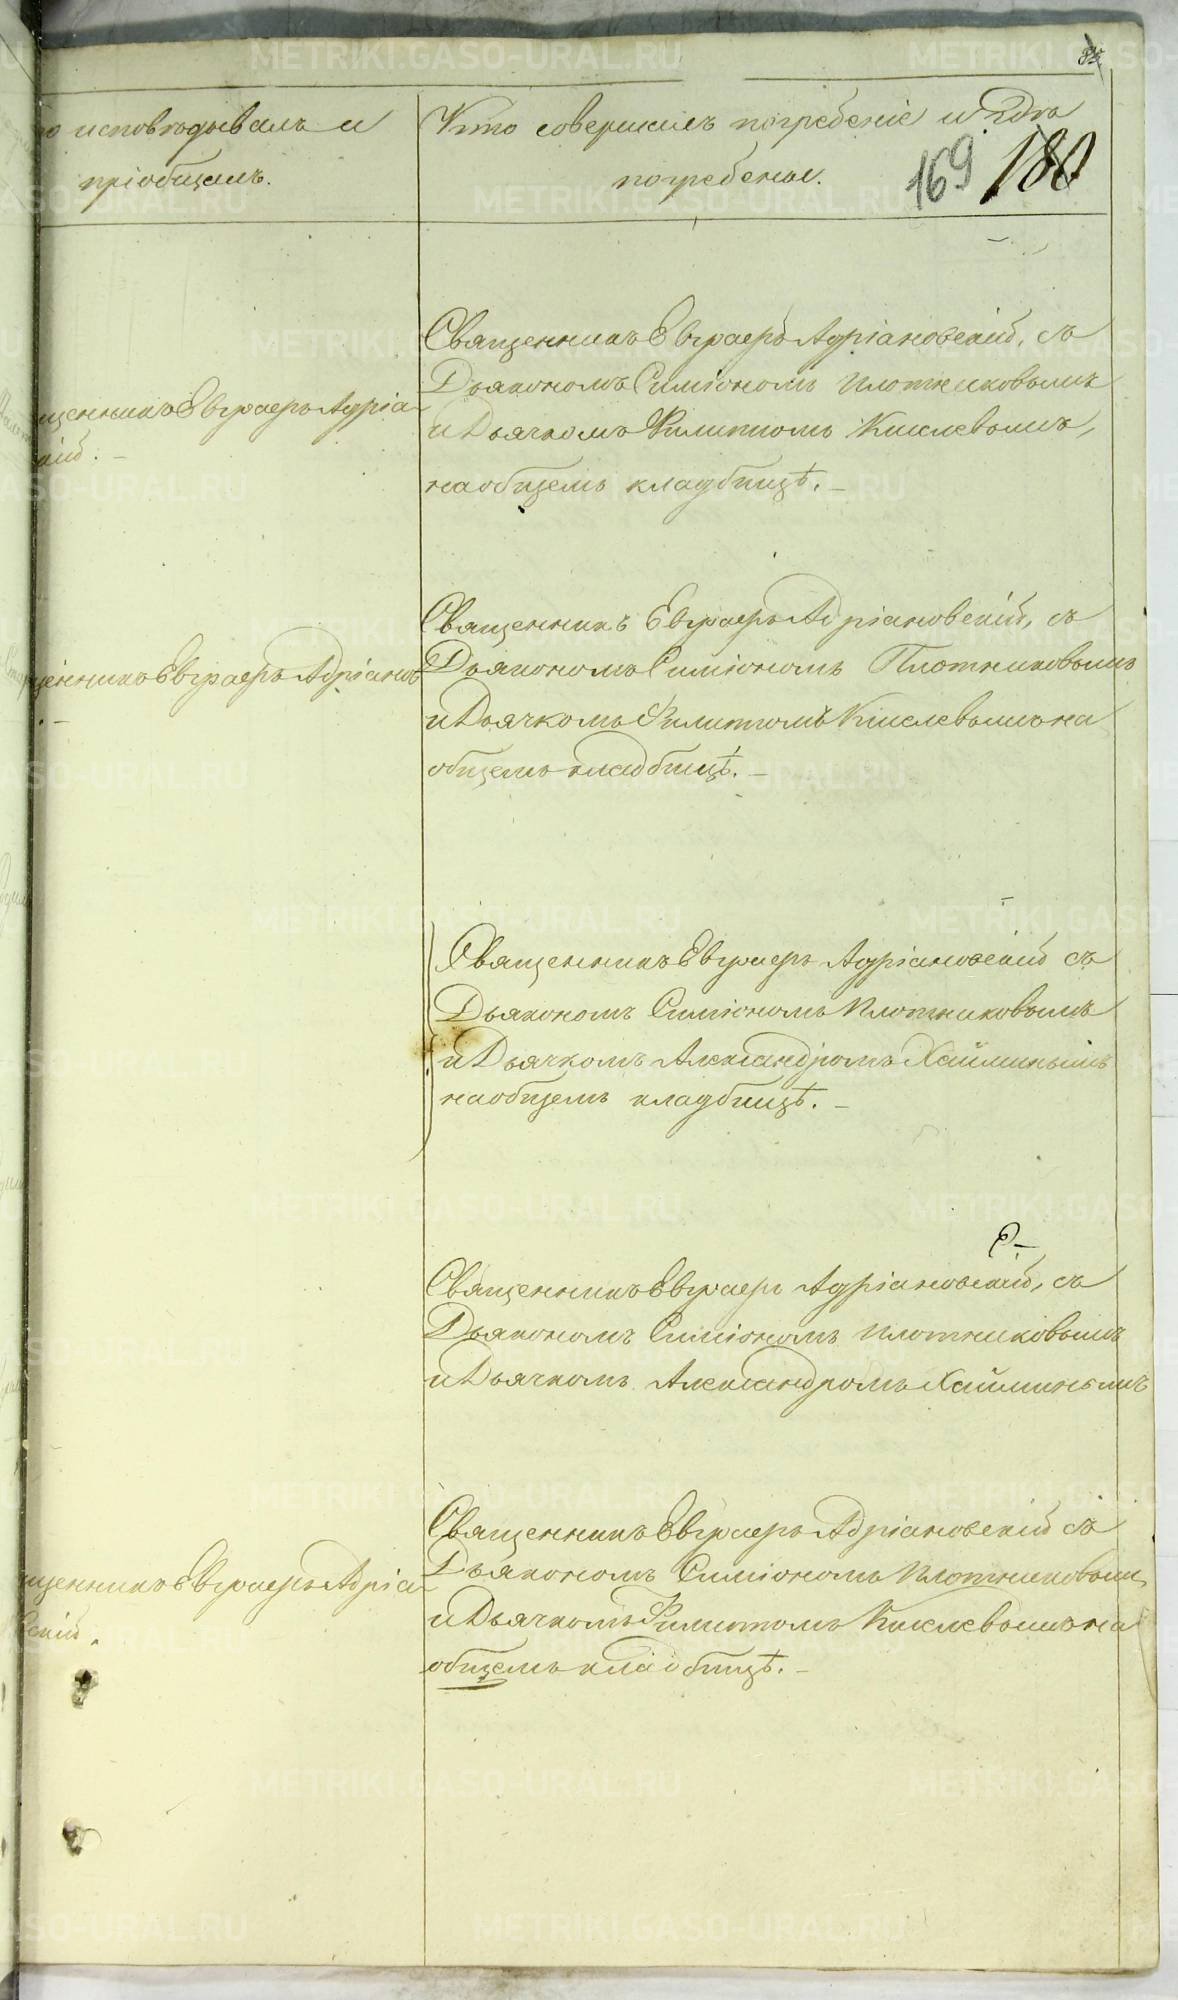 о исповѣдывалъ и
пріобщалъ.
Кто совершалъ погребеніе и гдѣ
погребены.
169 180
щенникъ Евграфъ Адріа-
кій. –
Священникъ Евграфъ Адріановскій, съ
Дьякономъ Симіономъ Плотниковымъ
и Дьячкомъ Филиппомъ Киселевымъ,
на общемъ кладбищѣ. –
щенникъ Евграфъ Адріанов
Священникъ Евграфъ Адріановскій, съ
Дьякономъ Симіономъ Плотниковымъ
и Дьячкомъ Филипомъ Киселевымъ на
общемъ кладбищѣ. –
Священникъ Евграфъ Адріановскій съ
Дьякономъ Симіономъ Плотниковымъ
и Дьячкомъ Александромъ Хайминымъ
на общемъ кладбищѣ. –
Священникъ Евграфъ Адріановскій, съ
Дьякономъ Симіономъ Плотниковымъ
и Дьячкомъ Александромъ Хайминымъ
щенникъ Евграфъ Адріа-
скій.
Священникъ Евграфъ Адріановскій съ
Дьякономъ Симіономъ Плотниковым
и Дьячкомъ Филипомъ Киселевымъ на
общемъ кладбищѣ. –
METRIKI.GASO-URAL.RU